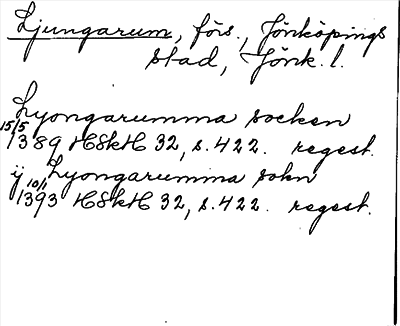 Ljungarum, förs., Jönköpings
stad, Jönk. l.
Lyongarumma socken
15/5 1389 HSkH 32, s. 422. regest.
ij Lyongarumma sokn
10/1 1393 HSkH 32, s. 422. regest.